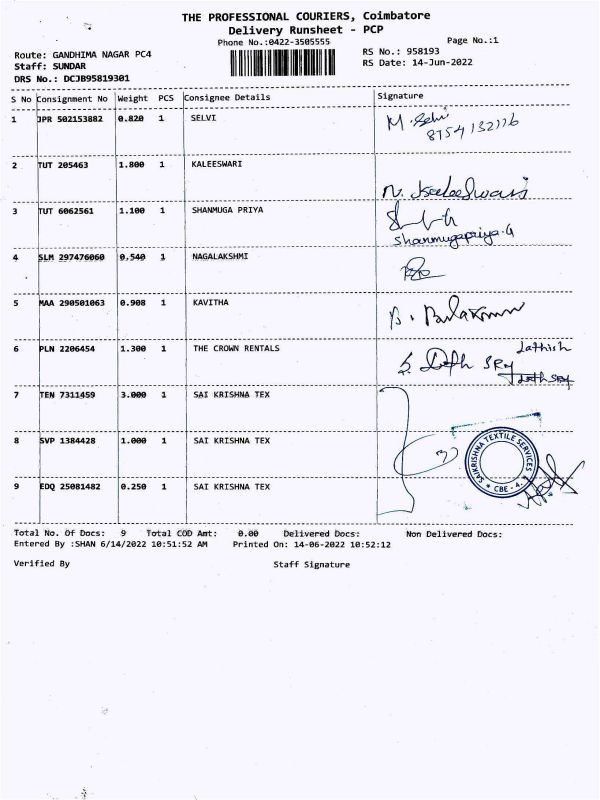 THE PROFESSIONAL COURIERS, Coimbatore
Delivery Runsheet - PCP
Phone No.:0422-3505555
Page No.:1
Route: GANDHIMA NAGAR PC4
RS No.: 958193
Staff: SUNDAR
RS Date: 14-Jun-2022
DRS No.: DCJB95819301
S No Consignment No Weight PCS Consignee Details Signature
1 JPR 502153882 0.820 1 SELVI M. Selvi
8754132116
2 TUT 205463 1.800 1 KALEESWARI
N. Kaleeshwari
3 TUT 6062561 1.100 1 SHANMUGA PRIYA
Shanmugapriya.G
4 SLM 297476060 0.540 1 NAGALAKSHMI
5 MAA 290501063 0.908 1 KAVITHA
6 PLN 2206454 1.300 1 THE CROWN RENTALS
7 TEN 7311459 3.000 1 SAI KRISHNA TEX
8 SVP 1384428 1.000 1 SAI KRISHNA TEX
SAIKRISHNA TEXTILE SERVICES
* CBE - 4. *
9 EDQ 25081482 0.250 1 SAI KRISHNA TEX
Total No. Of Docs: 9 Total COD Amt: 0.00 Delivered Docs: Non Delivered Docs:
Entered By :SHAN 6/14/2022 10:51:52 AM Printed On: 14-06-2022 10:52:12
Verified By Staff Signature